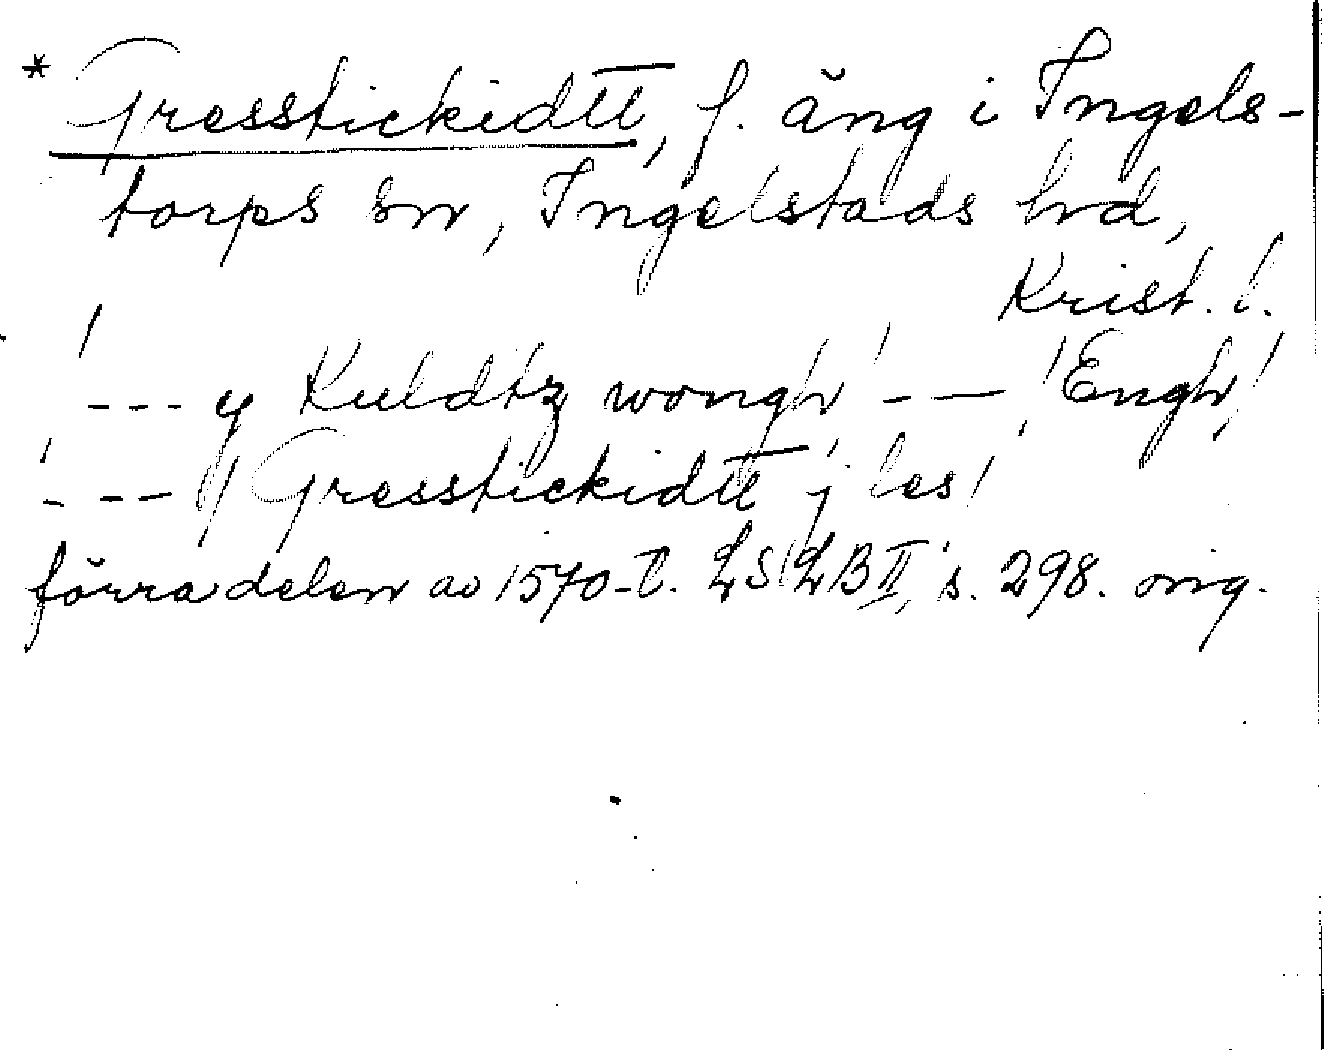 * Gresstickidtt, f. äng i Ingels-
torps sn, Ingelstads hd,
Krist. l.
' --- y Kuldtz wongh' --- 'Engh'
' --- 1 Gresstickidtt j les'
förra delen av 1570-t. LSLB II, s. 298. orig.